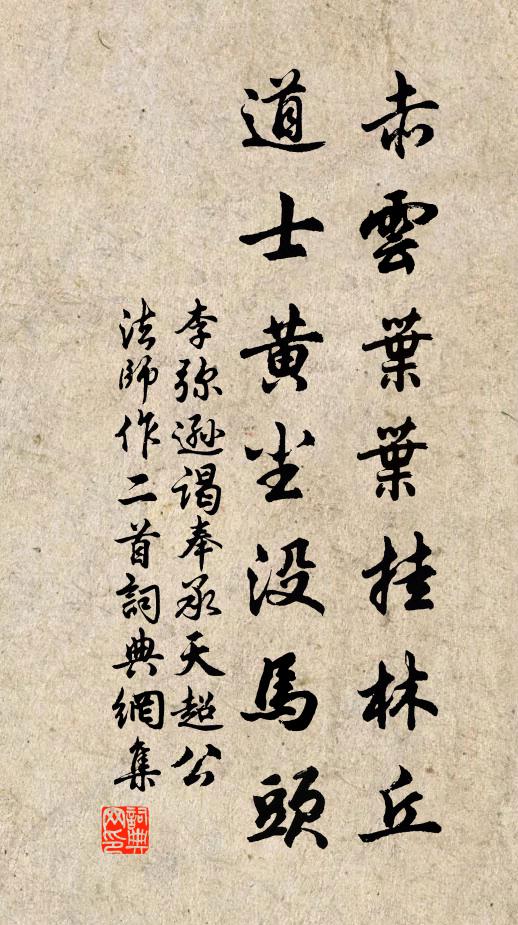 赤雲葉葉挂林丘
道士黄尘没馬頭
李弥遜謁奉承天超公
法師作二首詞典網集
詞典
网印